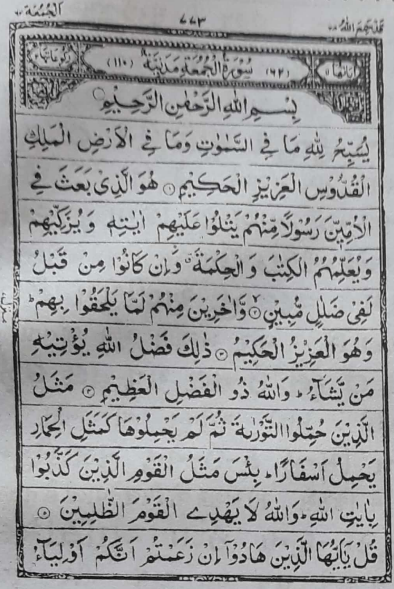 الجمعة ٦٢
٧٧٣
قد سمع الله ٢٨
اٰیاتها ١١ (٦٢) سُوۡرَةُ الۡجُمُعَةِ مَدَنِيَّةٌ (١١٠) رکوعاتها ٢
بِسۡمِ اللهِ الرَّحۡمٰنِ الرَّحِيۡمِ
يُسَبِّحُ لِلّٰهِ مَا فِي السَّمٰوٰتِ وَمَا فِي الۡاَرۡضِ الۡمَلِكِ
الۡقُدُّوۡسِ الۡعَزِيۡزِ الۡحَكِيۡمِ ۝۱ هُوَ الَّذِيۡ بَعَثَ فِي
الۡاُمِّيّٖنَ رَسُوۡلًا مِّنۡهُمۡ يَتۡلُوۡا عَلَيۡهِمۡ اٰيٰتِهٖ وَيُزَكِّيۡهِمۡ
وَيُعَلِّمُهُمُ الۡكِتٰبَ وَالۡحِكۡمَةَ ۗ وَاِنۡ كَانُوۡا مِنۡ قَبۡلُ
لَفِيۡ ضَلٰلٍ مُّبِيۡنٍ ۝۲ وَّاٰخَرِيۡنَ مِنۡهُمۡ لَمَّا يَلۡحَقُوۡا بِهِمۡ ؕ
وَهُوَ الۡعَزِيۡزُ الۡحَكِيۡمُ ۝۳ ذٰلِكَ فَضۡلُ اللهِ يُؤۡتِيۡهِ
مَنۡ يَّشَآءُ ؕ وَاللهُ ذُو الۡفَضۡلِ الۡعَظِيۡمِ ۝۴ مَثَلُ
الَّذِيۡنَ حُمِّلُوا التَّوۡرٰىةَ ثُمَّ لَمۡ يَحۡمِلُوۡهَا كَمَثَلِ الۡحِمَارِ
يَحۡمِلُ اَسۡفَارًا ؕ بِئۡسَ مَثَلُ الۡقَوۡمِ الَّذِيۡنَ كَذَّبُوۡا
بِاٰيٰتِ اللهِ ؕ وَاللهُ لَا يَهۡدِي الۡقَوۡمَ الظّٰلِمِيۡنَ ۝۵
قُلۡ يٰۤاَيُّهَا الَّذِيۡنَ هَادُوۡۤا اِنۡ زَعَمۡتُمۡ اَنَّكُمۡ اَوۡلِيَآءُ